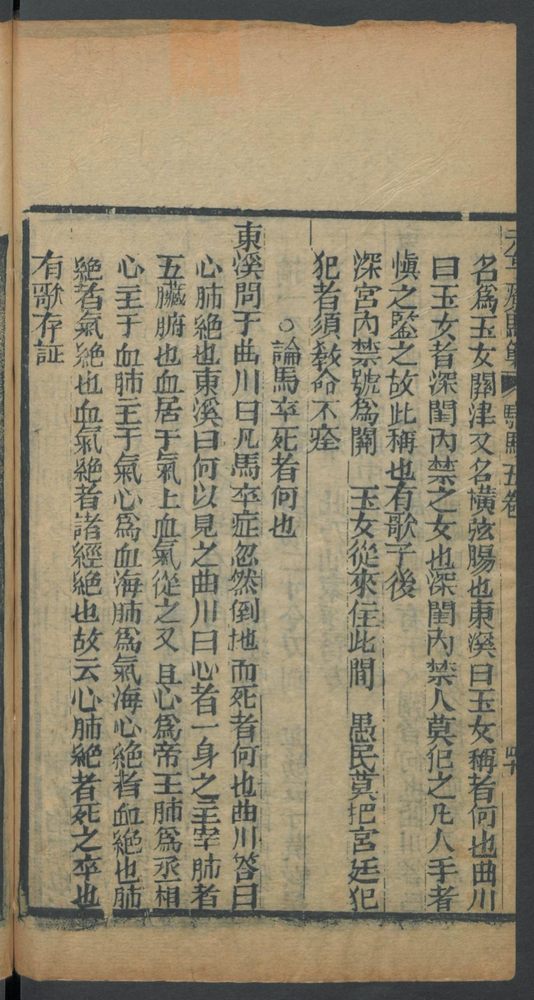 元亨療馬集 駝馬 五卷 四十
名爲玉女關津又名橫弦腸也東溪曰玉女稱者何也曲川
曰玉女者深閨內禁之女也深閨內禁人莫犯之凡人手者
慎之監之故此稱也有歌于後
深宮內禁號爲關 玉女從來住此間 愚民莫把宮廷犯
犯者須教命不痊
○論馬卒死者何也
東溪問于曲川曰凡馬卒症忽然倒地而死者何也曲川答曰
心肺絶也東溪曰何以見之曲川曰心者一身之主宰肺者
五臟腑也血居于氣上血氣從之又且心爲帝王肺爲丞相
心主于血肺主于氣心爲血海肺爲氣海心絶者血絶也肺
絶者氣絶也血氣絶者諸經絶也故云心肺絶者死之卒也
有歌存証